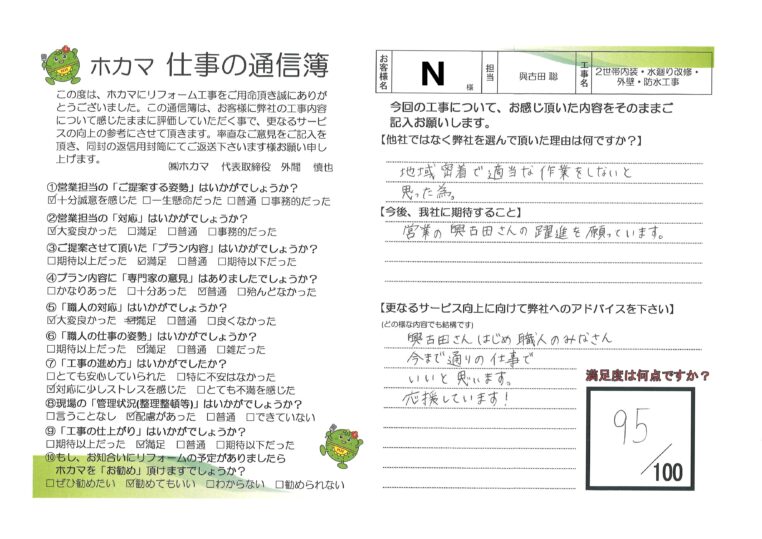 ホカマ 仕事の通信簿
この度は、ホカマにリフォーム工事をご用命頂き誠にありが
とうございました。この通信簿は、お客様に弊社の工事内容
について感じたままに評価していただく事で、更なるサービ
スの向上の参考にさせて頂きます。率直なご意見をご記入を
頂き、同封の返信用封筒にてご返送下さいます様お願い申し
上げます。
㈱ホカマ 代表取締役 外間 慎也
①営業担当の「ご提案する姿勢」はいかがでしょうか?
☑十分誠意を感じた □一生懸命だった □普通 □事務的だった
②営業担当の「対応」はいかがでしょうか?
☑大変良かった □満足 □普通 □事務的だった
③ご提案させて頂いた「プラン内容」はいかがでしょうか?
□期待以上だった ☑満足 □普通 □期待以下だった
④プラン内容に「専門家の意見」はありましたでしょうか?
□かなりあった □十分あった ☑普通 □殆んどなかった
⑤「職人の対応」はいかがでしょうか?
☑大変良かった ☑満足 □普通 □良くなかった
⑥「職人の仕事の姿勢」はいかがでしょうか?
□期待以上だった ☑満足 □普通 □雑だった
⑦「工事の進め方」はいかがでしたか?
□とても安心していられた □特に不安はなかった
☑対応に少しストレスを感じた □とても不満を感じた
⑧現場の「管理状況(整理整頓等)」はいかがでしょうか?
□言うことなし ☑配慮があった □普通 □できていない
⑨「工事の仕上がり」はいかがでしょうか?
□期待以上だった ☑満足 □普通 □期待以下だった
⑩もし、お知合いにリフォームの予定がありましたら
ホカマを「お勧め」頂けますでしょうか?
□ぜひ勧めたい ☑勧めてもいい □わからない □勧められない
お客様名 N 様 担当 與古田 聡 工事名 2世帯内装・水廻り改修・
外壁・防水工事
今回の工事について、お感じ頂いた内容をそのままご
記入お願いします。
【他社ではなく弊社を選んで頂いた理由は何ですか?】
地域密着で適当な作業をしないと
思った為。
【今後、我社に期待すること】
営業の與古田さんの躍進を願っています。
【更なるサービス向上に向けて弊社へのアドバイスを下さい】
(どの様な内容でも結構です)
與古田さんはじめ職人のみなさん
今まで通りの仕事で
いいと思います。
応援しています!
満足度は何点ですか?
95
/100